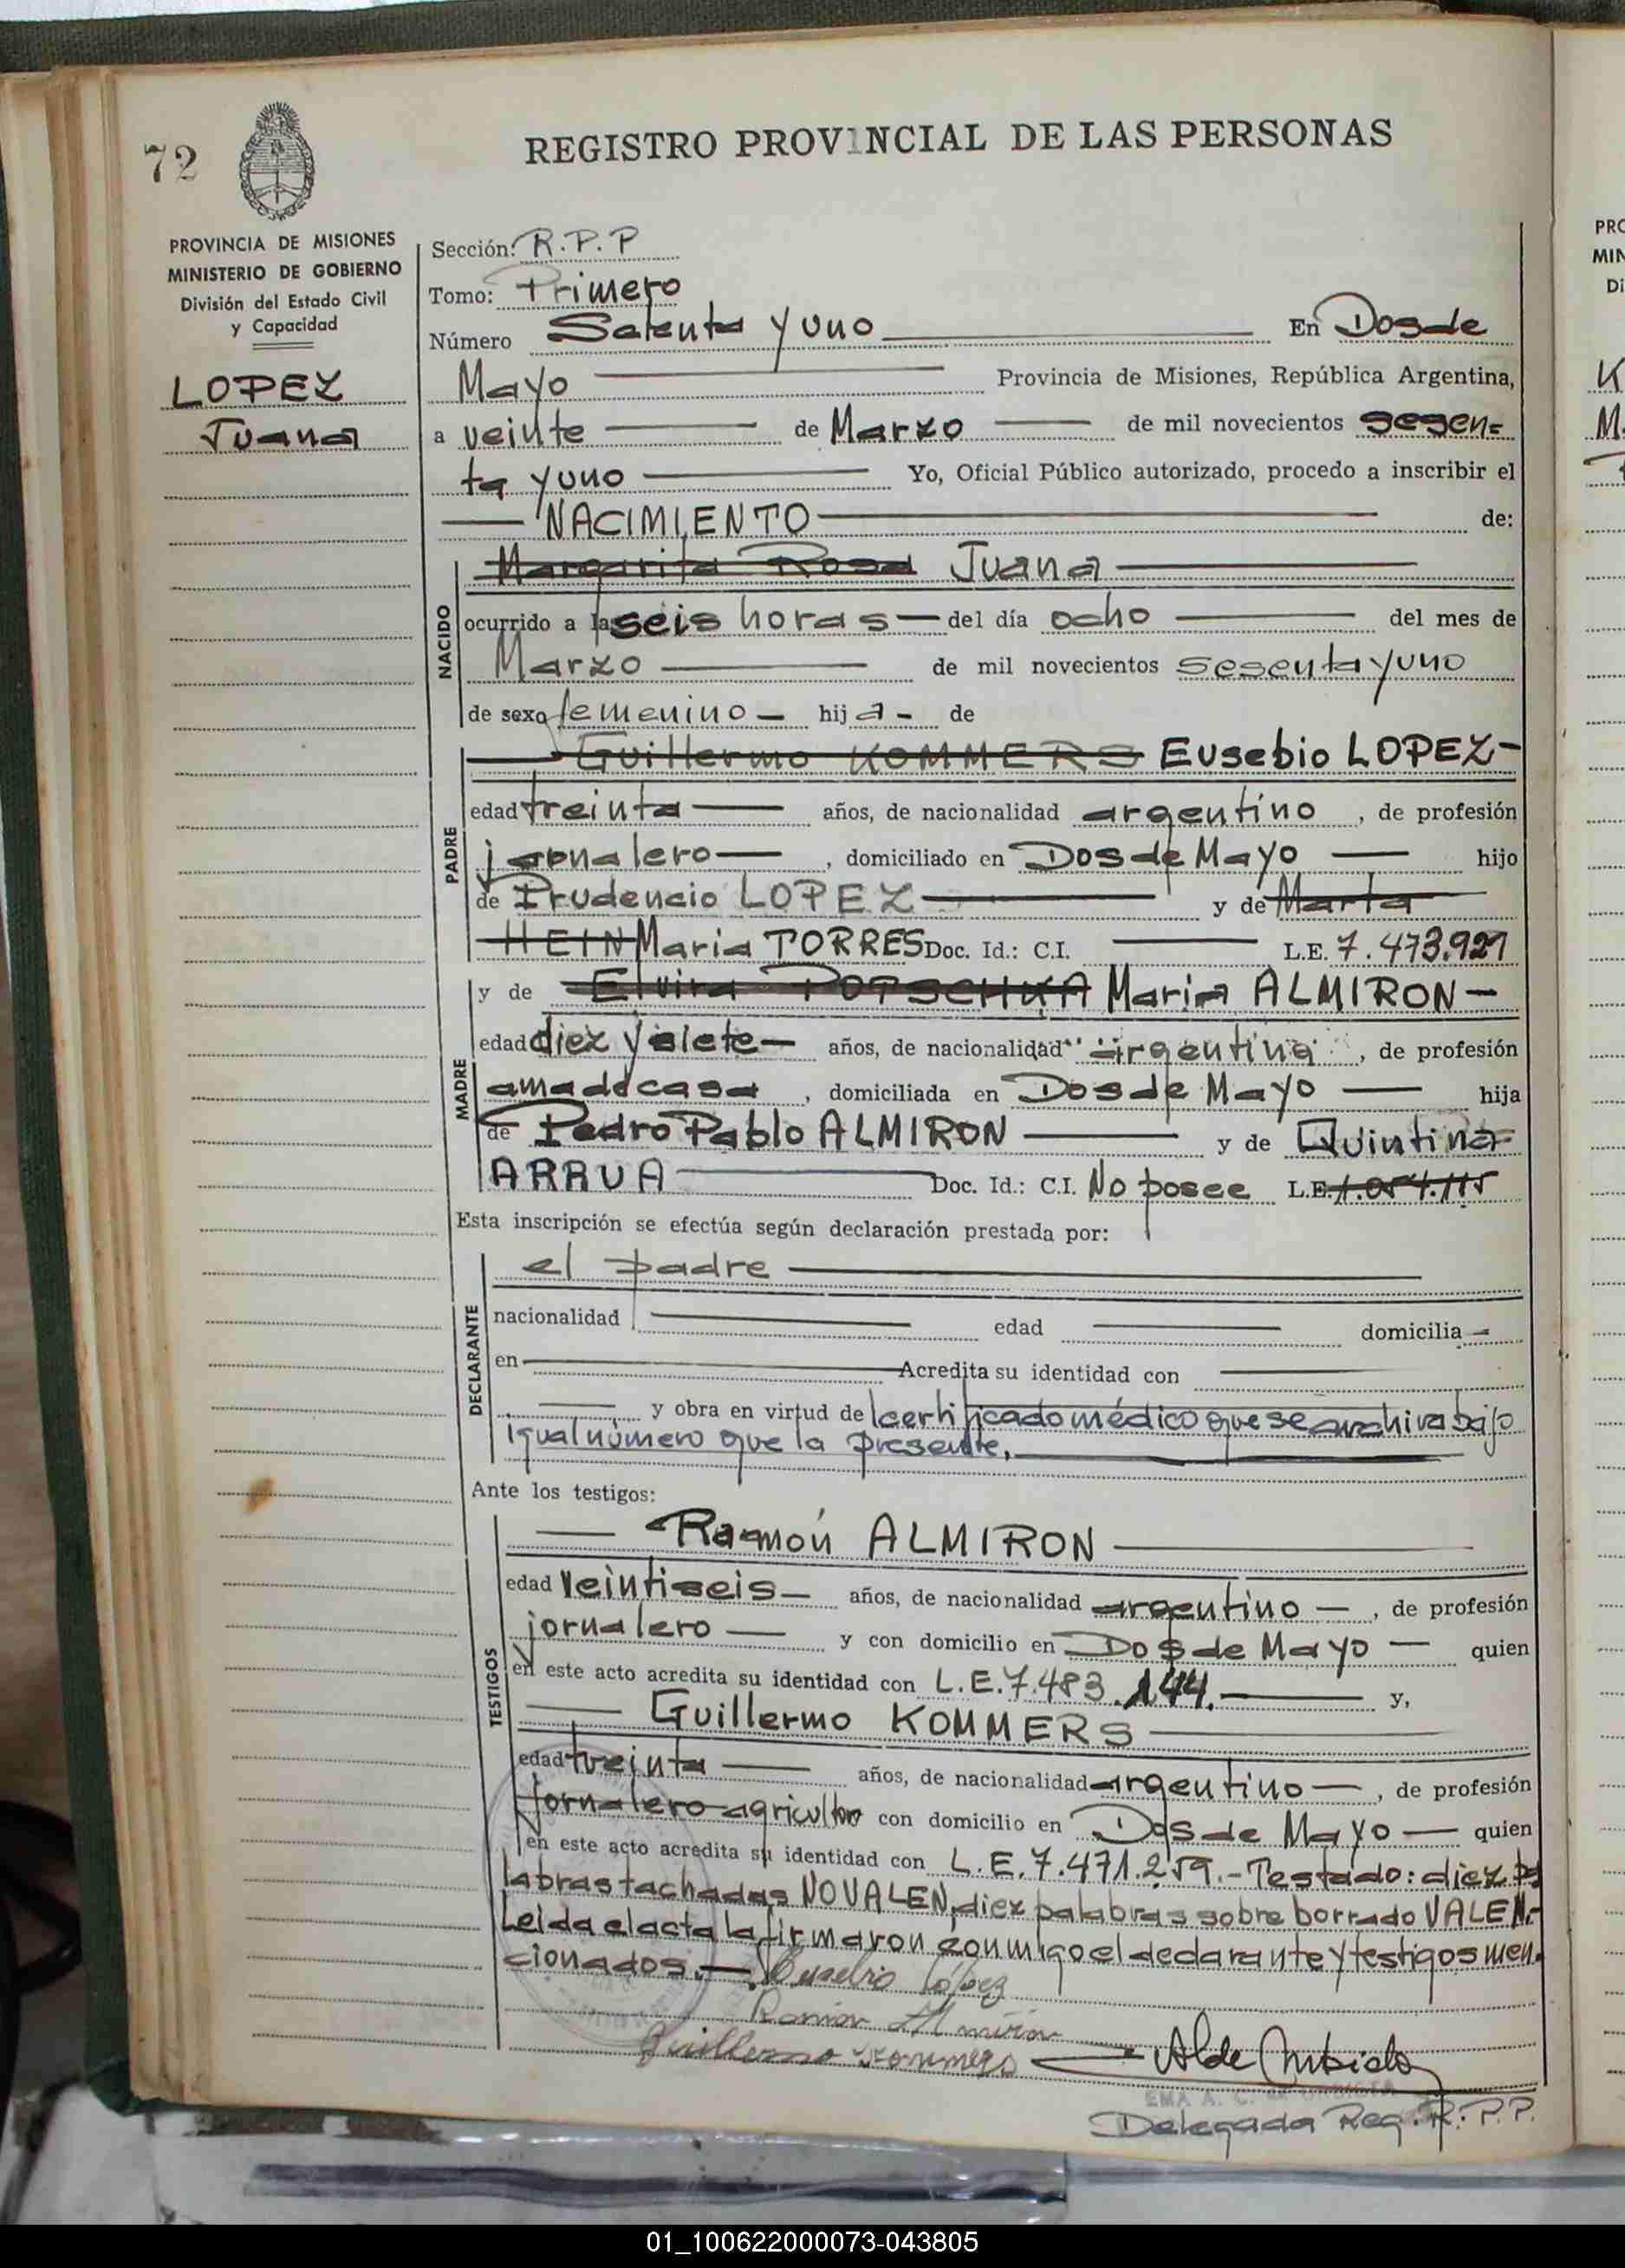 72
REGISTRO PROVINCIAL DE LAS PERSONAS
PROVINCIA DE MISIONES
MINISTERIO DE GOBIERNO
División del Estado Civil
y Capacidad
LOPEZ
Juana
Sección: R.P.P
Tomo: Primero
Número Setenta y uno En Dos de
Mayo Provincia de Misiones, República Argentina,
a veinte de Marzo de mil novecientos sesen=
ta y uno Yo, Oficial Público autorizado, procedo a inscribir el
NACIMIENTO de:
NACIDO
Margarita Rosa Juana
ocurrido a las seis horas del día ocho del mes de
Marzo de mil novecientos sesenta y uno
de sexo femenino hija de
PADRE
Guillermo KOMMERS Eusebio LOPEZ
edad treinta años, de nacionalidad argentino, de profesión
jornalero, domiciliado en Dos de Mayo hijo
de Prudencio LOPEZ y de Marta
HEIN Maria TORRES Doc. Id.: C.I. L.E. 7.473.921
MADRE
y de Elvira POTSCHKA Maria ALMIRON
edad diez y siete años, de nacionalidad argentina, de profesión
ama de casa, domiciliada en Dos de Mayo hija
de Pedro Pablo ALMIRON y de Quintina
ARRUA Doc. Id.: C.I. No posee L.E. 1.054.115
Esta inscripción se efectúa según declaración prestada por:
DECLARANTE
el padre
nacionalidad edad domicilia
en Acredita su identidad con
y obra en virtud del certificado médico que se archiva bajo
igual número que la presente.
Ante los testigos:
TESTIGOS
Ramón ALMIRON
edad veintiseis años, de nacionalidad argentino, de profesión
jornalero y con domicilio en Dos de Mayo quien
en este acto acredita su identidad con L.E. 7.483.144. y,
Guillermo KOMMERS
edad treinta años, de nacionalidad argentino, de profesión
jornalero agricultor con domicilio en Dos de Mayo quien
en este acto acredita su identidad con L.E. 7.471.259.- Testado: diez pa
labras tachadas NO VALEN, diez palabras sobre borrado VALEN.-
Leida el acta la firmaron conmigo el declarante y testigos men.
cionados.— Eusebio López
Ramon Almirón
Guillermo Kommers
Delegada Reg. R.P.P.
01_100622000073-043805